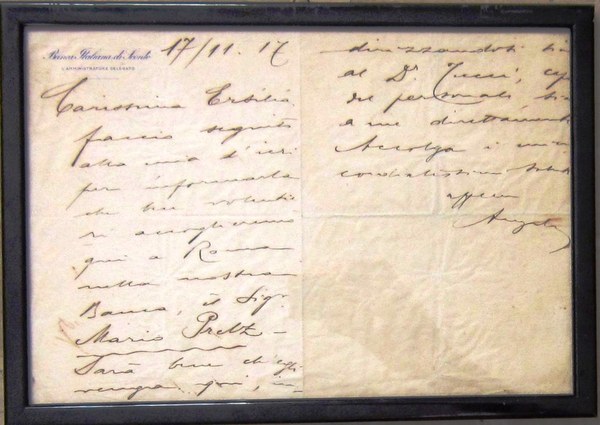 Banca Italiana di Sconto
L'AMMINISTRATORE DELEGATO
17/11.17
Carissima Ersilia
faccio seguito
alla mia d'ieri
per informarla
che ben volentie
ri accoglieremo
qui a Roma
nella nostra
Banca, il Sig.
Mario Preltz -
Sarà bene ch'egli
venga qui, in
dirizzandoti
al Dr. Tucci, capo
del personale,
a me direttamente
Accolga i miei
cordialissimi saluti
affmo
Angelo